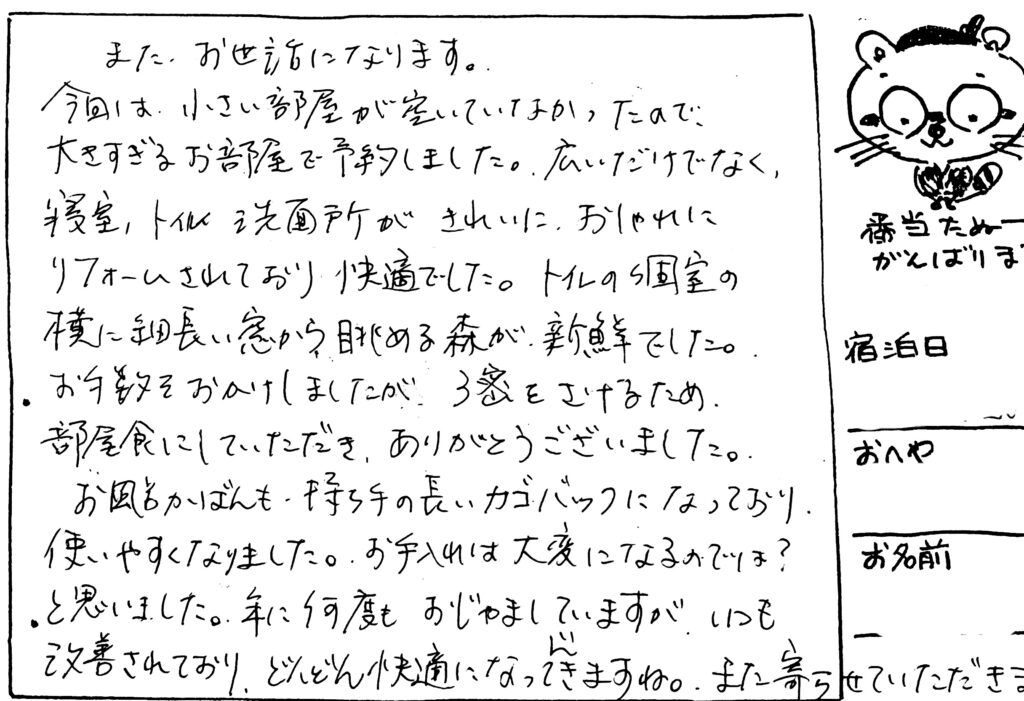 また、お世話になります。
今回は、小さい部屋が空いていなかったので、
大きすぎるお部屋で予約しました。広いだけでなく、
寝室、トイレ 洗面所が きれいに、おしゃれに
リフォームされており、快適でした。トイレの個室の
横に細長い窓から、眺める森が、新鮮でした。
お手数をおかけしましたが、3密をさけるため、
部屋食にしていただき、ありがとうございました。
お風呂かばんも、持ち手の長いカゴバックになっており、
使いやすくなりました。お手入れは大変になるのでは?
と思いました。年に何度も おじゃましていますが、いつも
改善されており、どんどん快適になってきますね。また寄らせていただきま
番当 たぬー
がんばりま
宿泊日
おへや
お名前